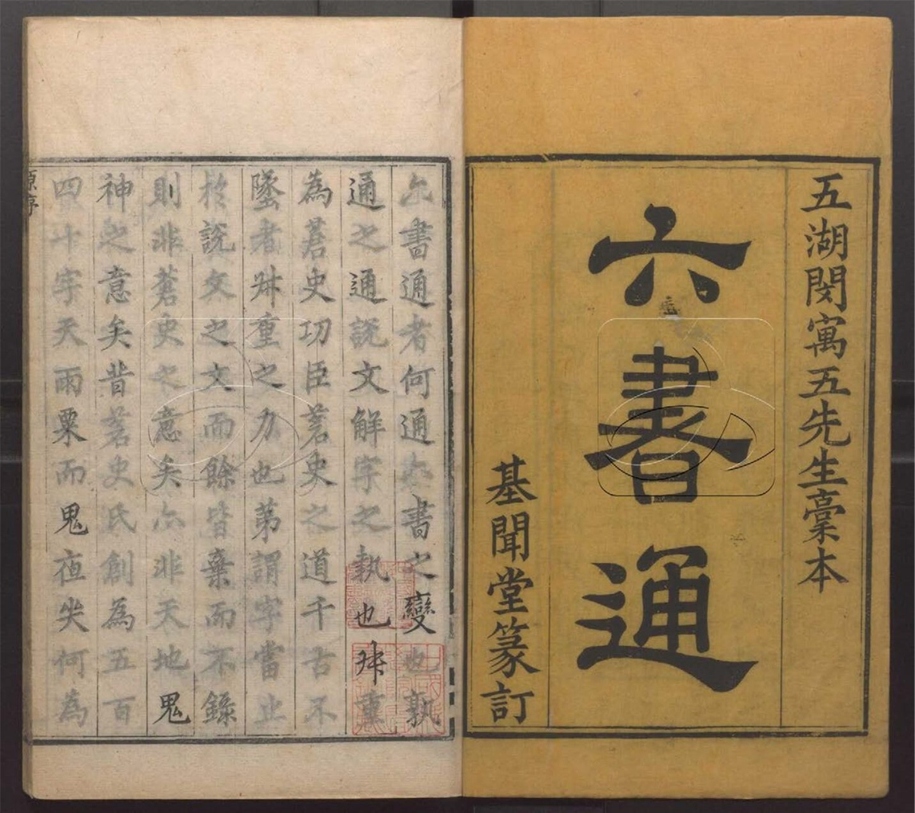 五湖閔寓五先生稾本
六書通
基聞堂篆訂
六書通者何通六書之變也孰
通之通說文解字之執也尗重
為蒼史功臣蒼史之道千古不
墜者尗重之力也苐謂字當止
於說文之文而餘皆棄而不錄
則非蒼史之意矣亦非天地鬼
神之意矣昔蒼史氏創為五百
四十字天雨粟而鬼夜哭何為
原序